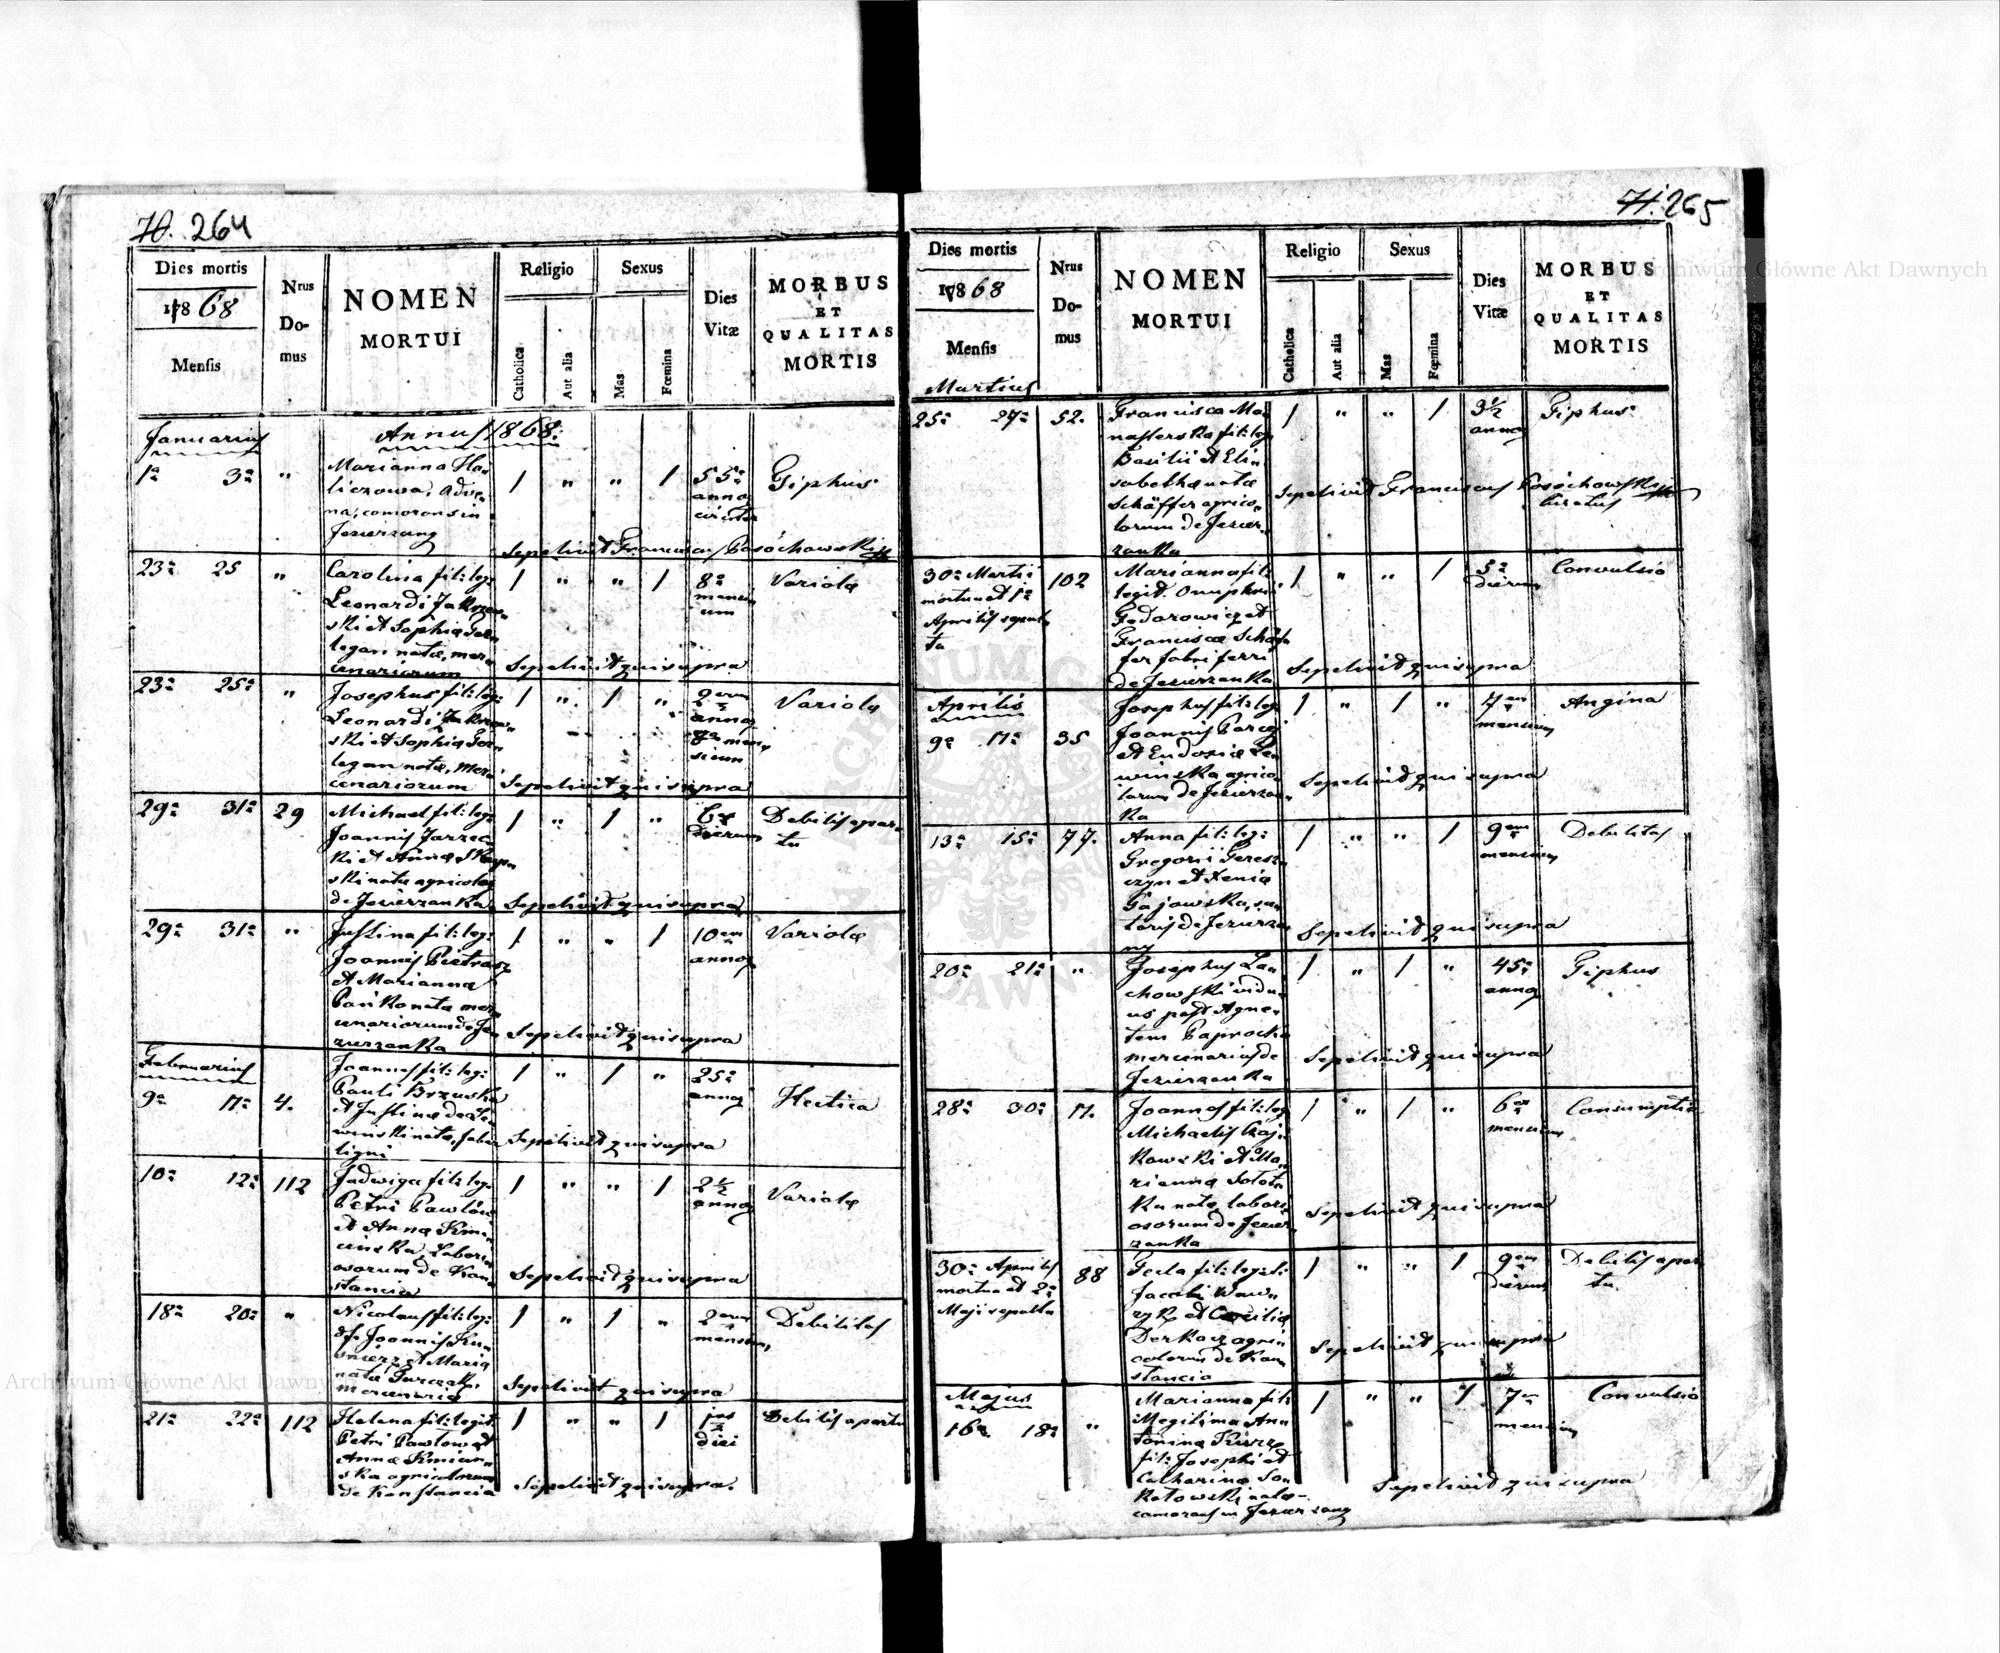 70. 264
Dies mortis
1868
Mensis
Nrus
Do-
mus
NOMEN
MORTUI
Religio
Catholica
Aut alia
Sexus
Mas
Fœmina
Dies
Vitæ
MORBUS
ET
QUALITAS
MORTIS
Januarius
Annus 1868.
1a 3a "
Marianna Ha-
liczowa, adve-
na, comorans in
Jezierzany
1 " " 1
55a
annor
circiter
Tiphus
Sepelivit Franciscus Cosóchowski
23a 25 "
Carolina fil: leg:
Leonardi
ski et Sophiæ
legan natæ, mer-
cenariorum
1 " " 1
8a
mensi
um
Variolæ
Sepelivit qui supra
23a 25a "
Josephus fil: leg:
Leonardi
ski et Sophiæ
legan natæ, mer-
cenariorum
1 " 1 "
2orum
annor
8a men-
sium
Variolæ
Sepelivit qui supra
29a 31a 29
Michael fil: leg:
Joannis Jarzec-
ki et Annæ
ski natæ agricolar
de Jezierzanka
1 " 1 "
6x
dierum
Debilis a par-
tu
Sepelivit qui supra
29a 31a "
Justina fil: leg:
Joannis Pietrasz
et Marianna
Pańko nata mer-
cenariorum de Je-
zierzanka
1 " " 1
10em
annor
Variolæ
Sepelivit qui supra
Februarius
9a 11a 4.
Joannes fil: leg:
Pauli
et Justinæ de
winski nata, faber
ligni
1 " 1 "
25a
annor
Hectica
Sepelivit qui supra
10a 12a 112
Jadwiga fil: leg:
Petri Pawłów
et Anna Kmie-
cinska, labori-
osorum de Kon-
stancia
1 " " 1
2½
annor
Variolæ
Sepelivit qui supra
18a 20a "
Nicolaus fil: leg:
Joannis Ku-
śnierz et Maria
nata
mercenaria
1 " 1 "
2orum
mensium
Debilitas
Sepelivit qui supra
21a 22a 112
Helena fil: legit
Petri Pawłow et
Annæ Kmiecin-
ska agricolarum
de Konstancia
1 " " 1
diei
Debilis a partu
Sepelivit qui supra.
71. 265
Dies mortis
1868
Mensis
Martius
Nrus
Do-
mus
NOMEN
MORTUI
Religio
Catholica
Aut alia
Sexus
Mas
Fœmina
Dies
Vitæ
MORBUS
ET
QUALITAS
MORTIS
25a 27a 52.
Francisca Mo-
nasterska fil: leg
Basilii et Eli-
sabetha nata
Schäffer agrico-
larum de Jezier-
zanka
1 " " 1
3½
annor
Tiphus
Sepelivit Franciscus Cosóchowski
Curatus
30a Martii
mortua et 1a
Aprilis sepul-
ta
102
Marianna fil:
legit. Onuphrii
Fedorowicz et
Franciscæ Schäf-
fer fabri ferri
de Jezierzanka
1 " " 1
dierum
Convulsio
Sepelivit qui supra
Aprilis
9a 11a 35
Josephus fil: leg
Joannis
et Eudoxiæ Le-
winska agrico-
larum de Jezierzan-
ka
1 " 1 "
7em
mensium
Angina
Sepelivit qui supra
13a 15a 77.
Anna fil: leg:
Gregorii Teresz-
czyn et Xeniæ
Gajowska,
de Jezierza-
ny
1 " " 1
9em
mensium
Debilitas
Sepelivit qui supra
20a 21a "
Josephus La-
chowski vidu-
us post Agne-
tem Paprocka
mercenarius de
Jezierzanka
1 " 1 "
45a
annor
Tiphus
Sepelivit qui supra
28a 30a 11.
Joannes fil: leg
Michaelis Czaj-
kowski et Ma-
rianna
ka nata, labori-
osorum de Jezier-
zanka
1 " 1 "
6x
mensium
Consumptio
Sepelivit qui supra
30a Aprilis
mortua et 2a
Maji sepulta
88
Tecla fil: legit:
Jacobi Waw-
ryk et Cæciliæ
Derkacz agri-
colarum de Kon-
stancia
1 " " 1
9em
dierum
Debilis a par-
tu
Sepelivit qui supra
Majus
16a 18a "
Marianna fil:
illegitima An-
tonina
fil: Josephi et
Catharina So-
kołowski nata
comorans in Jezierzany
1 " " 1
7em
mensium
Convulsio
Sepelivit qui supra
Archiwum Główne Akt Dawnych
Archiwum Główne Akt Dawnych